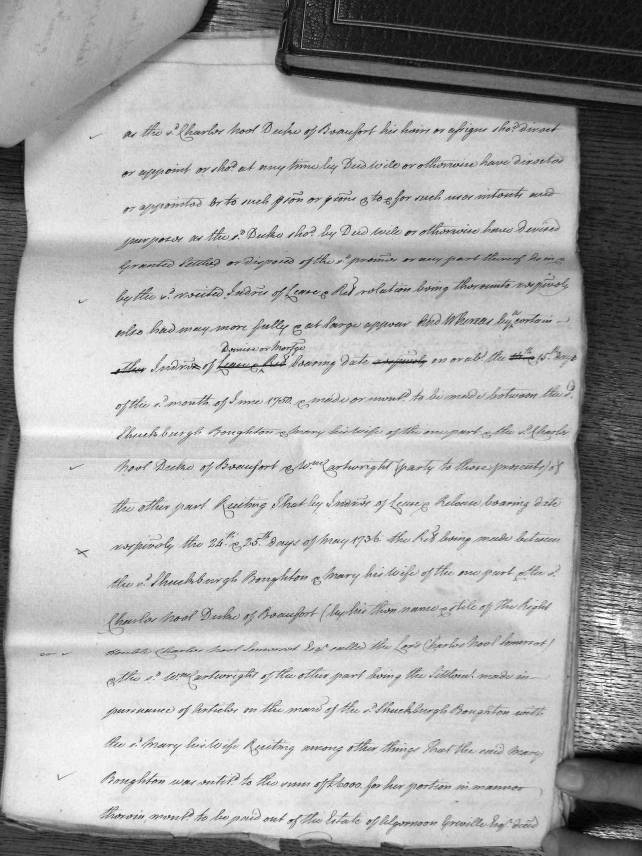 as the sd. Charles Noel Duke of Beaufort his heirs or assigns shod. direct
or appoint or shod. at any time by Deed will or otherwise have directed
or appointed or to such pson or psons & to & for such uses intents and
purposes as the sd. Duke shod. by Deed will or otherwise have devised
Granted Settled or disposed of the sd. premes or any part thereof As in &
by the sd. recited Indres of Lease & Rele relation being thereunto respively
also had may more fully & at large appear And Whereas by certain
other Indres of Lease & Rele Demise or Mortge bearing date respively on or abt. the 15th day
of the sd. month of June 1750 & made or mentd. to be made between the sd.
Shuckburgh Boughton & Mary his wife of the one part & the sd. Charles
Noel Duke of Beaufort & Wm. Cartwright (party to these presents) of
the other part Reciting That by Indres of Lease & Release bearing date
respively the 24th & 25th days of May 1736 the Rele being made between
the sd. Shuckburgh Boughton & Mary his Wife of the one part & the sd.
Charles Noel Duke of Beaufort (by his then name & stile of the Right
Charles Noel Somerset Esqr. called the Lord Charles Noel Somerset)
& the sd. Wm. Cartwright of the other part being the Settlemt. made in
pursuance of Articles on the marre of the sd. Shuckburgh Boughton with
the sd. Mary his Wife Reciting among other things That the said Mary
Boughton was entitd. to the sum of £6000 for her portion in manner
therein mentd. to be paid out of the Estate of Algernoon Greville Esqr. deced